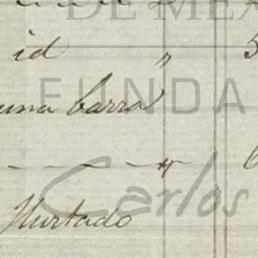 DE MÉX
id " 5
FUNDA
una barra
"
Carlos
Hurtado